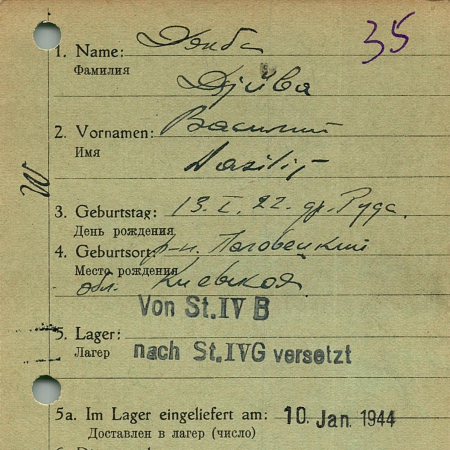 35
1. Name: Дзюба
Фамилия
Djuba
2. Vornamen: Василий
Имя
Wasilij
3. Geburtstag: 13. I. 22. др. Руда.
День рождения
4. Geburtsort: р-н.
Место рождения
обл. Киевская
Von St. IV B
5. Lager:
Лагер
nach St. IVG versetzt
5a. Im Lager eingeliefert am: 10. Jan. 1944
Доставлен в лагер (число)